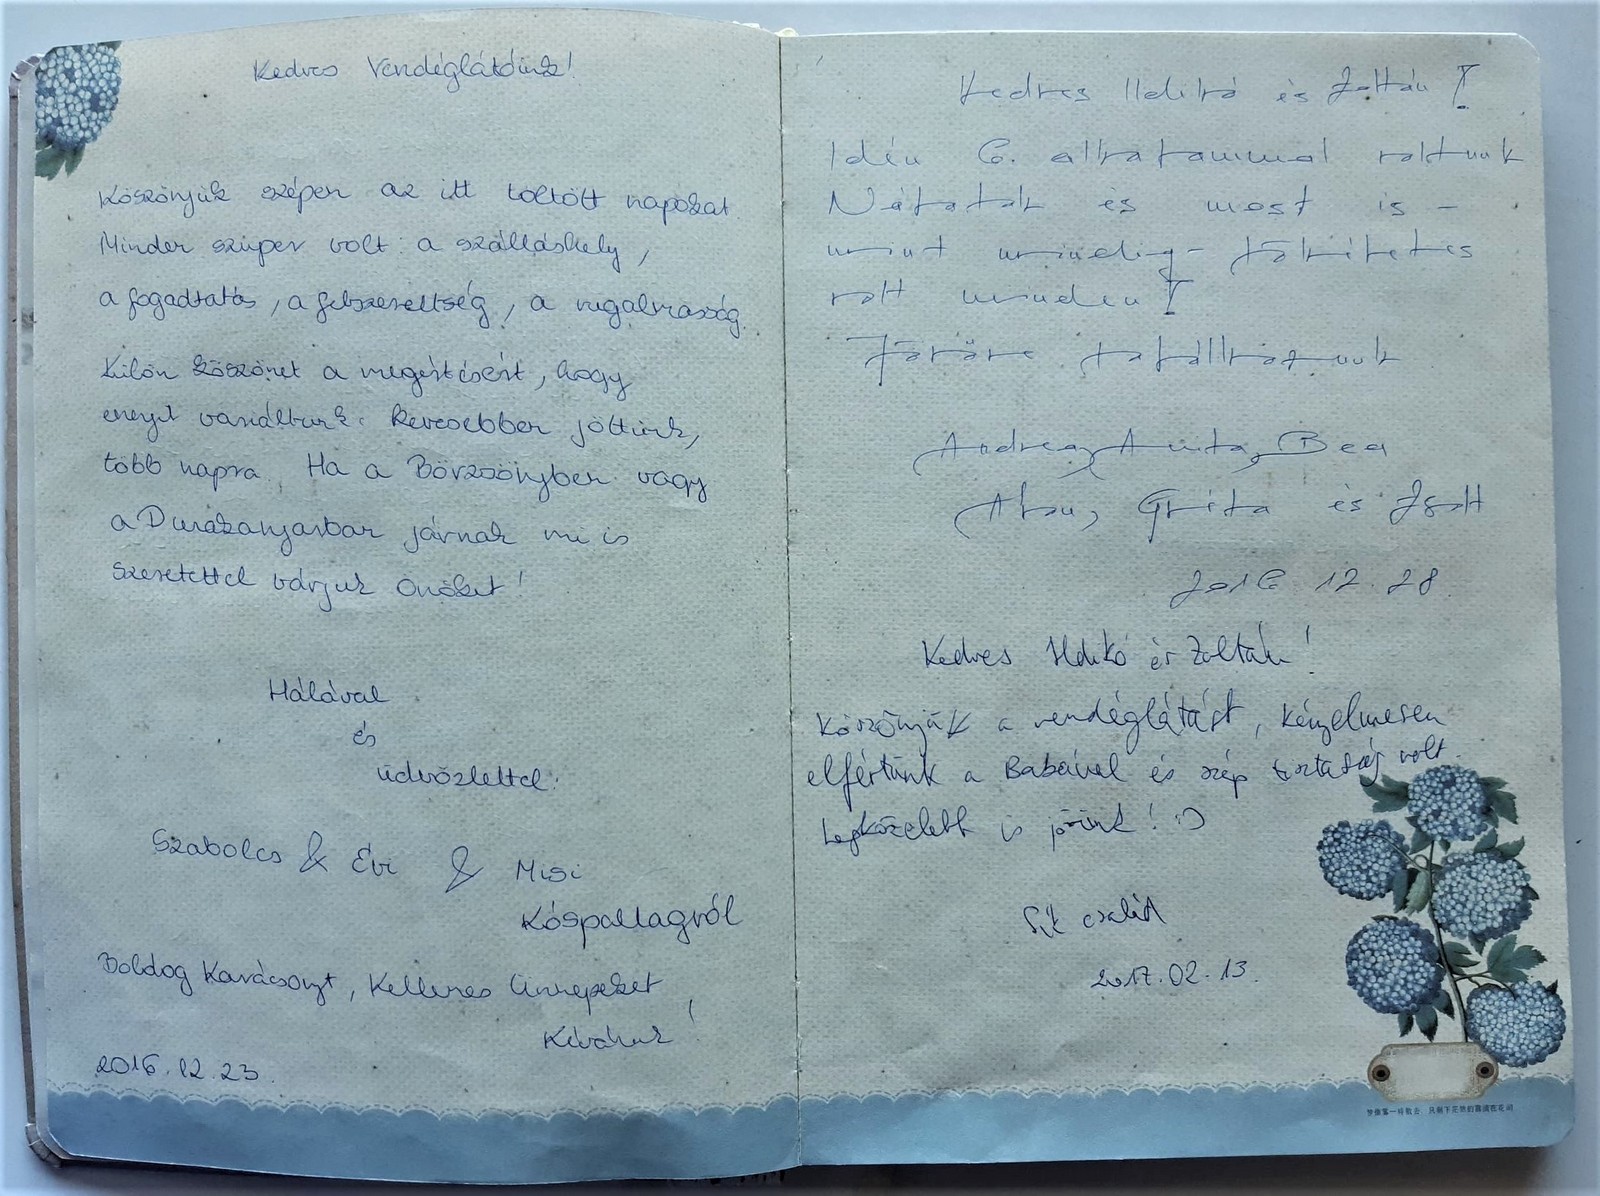 Kedves Vendéglátóink!
Köszönjük szépen az itt töltött napokat.
Minden szuper volt: a szálláshely,
a fogadtatás, a felszereltség, a rugalmasság.
Külön köszönet a megértésért, hogy
ennyit variáltunk: kevesebben jöttünk,
több napra. Ha a Börzsönyben vagy
a Dunakanyarban járnak mi is
szeretettel várjuk Önöket!
Hálával
és
üdvözlettel:
Szabolcs & Évi & Misi
Kóspallagról
Boldog Karácsonyt, Kellemes Ünnepeket
Kívánunk!
2016.12.23.
Kedves Ildikó és Zoltán!
Idén 6. alkalommal voltunk
Nálatok és most is -
mint mindig - tökéletes
volt minden!
Jövőre találkozunk
Andrea, Anita, Bea
Áron, Gréta és Zsolt
2016. 12. 28.
Kedves Ildikó és Zoltán!
Köszönjük a vendéglátást, kényelmesen
elfértünk a Babával és szép tisztaság volt.
Legközelebb is jövünk! :)
család
2017.02.13.